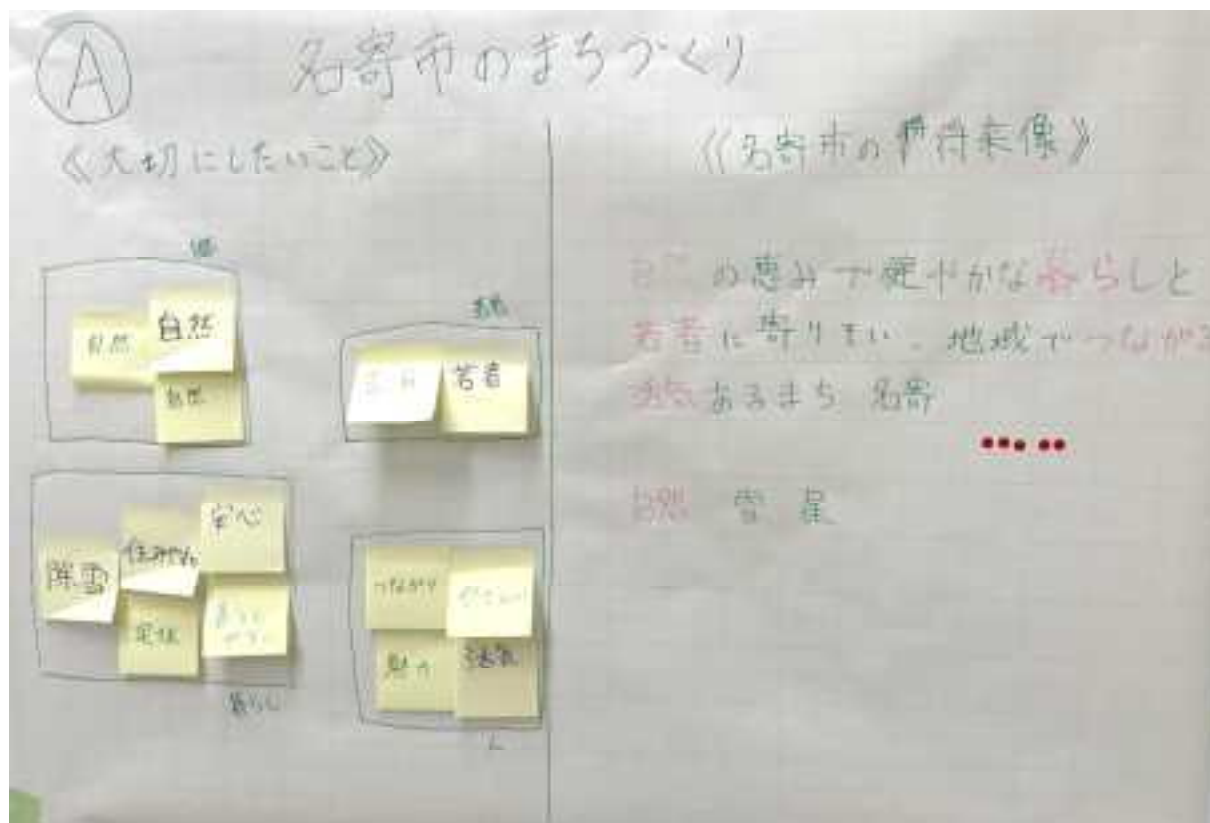 A
名寄市のまちづくり
《大切にしたいこと》
自然
自然
自然
若者
除雪
住みやすい
安心
暮らし
つながり
魅力
活気
《名寄市の将来像》
自然の恵みで健やかな暮らしと
若者に寄りそい、地域でつながる
活気あるまち 名寄
自然 雪 星